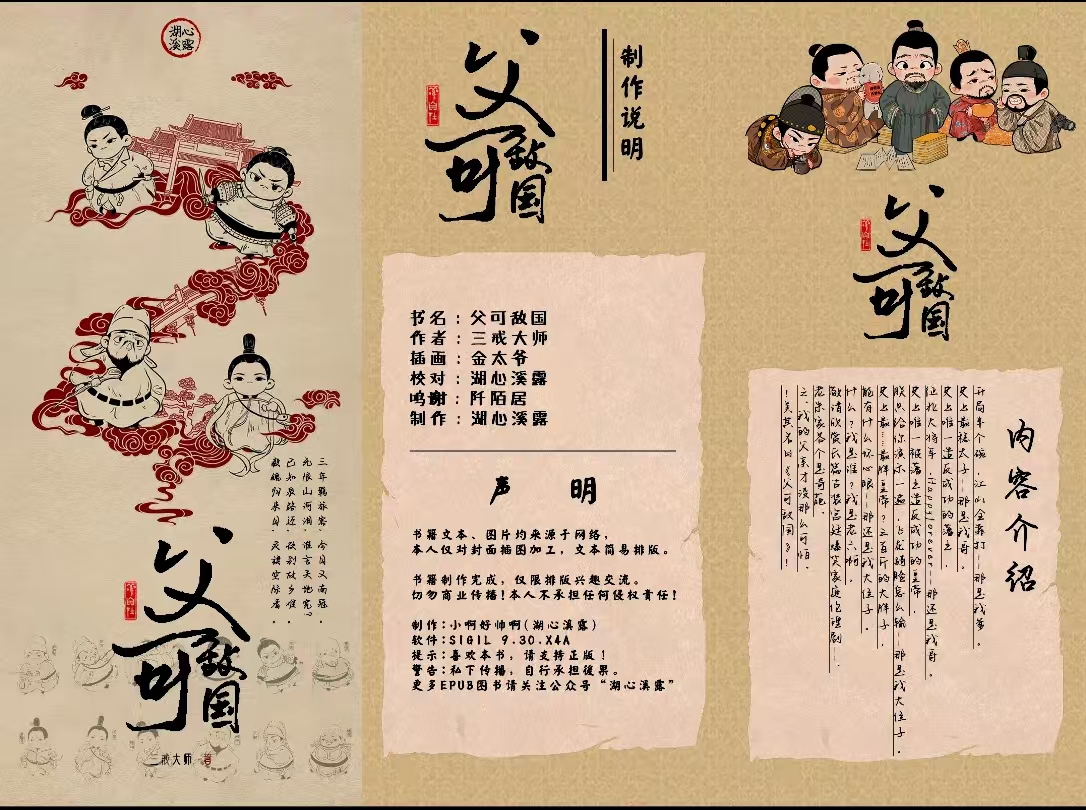 湖心
溪露
三年羁旅客,今日又南冠。
无限山河泪,谁言天地宽?
已知泉路近,欲别故乡难。
毅魄归来日,灵旗空际看。
父可敌国
三戒大师 著
父可敌国
制作说明
书名:父可敌国
作者:三戒大师
插画:金太爷
校对:湖心溪露
鸣谢:阡陌居
制作:湖心溪露
声 明
书籍文本、图片均来源于网络,
本人仅对封面插图加工,文本简易排版。
书籍制作完成,仅限排版兴趣交流。
切勿商业传播!本人不承担任何侵权责任!
制作:小啊好帅啊(湖心溪露)
软件:SIGIL 9.30.X4A
提示:喜欢本书,请支持正版!
警告:私下传播,自行承担後果。
更多EPUB图书请关注公众号“湖心溪露”
父可敌国
内容介绍
开局半个碗,江山全靠打—那是我爹.
史上最稳太子—那是我哥.
史上唯一造反成功的藩王.
征北大将军,Happyforever—那还是我哥.
史上唯一被藩王造反成功的皇帝.
朕只给你演示一遍,飞龙骑脸怎么输—那是我大侄子.
史上最……最胖皇帝?三百斤的大胖子.
能有什么坏心眼—那还是我大侄子.
什么?我是谁?我是老六啊.
敬请欣赏长篇古装宫廷爆笑家庭伦理剧—
老朱家各个是奇葩.
之,我的父亲才没那么可怕.
!关其名曰《父可敌国》!